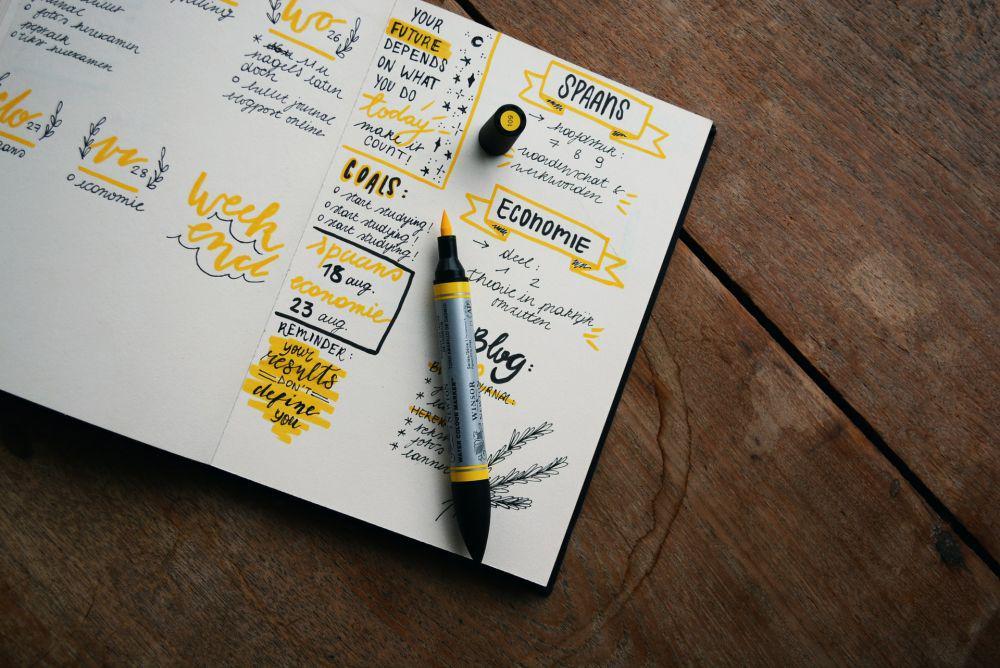 journal
foto's herexamen
herexamen
wo 26
nagels laten
doen
o bullet journal
blogpost online
do 27
vr 28
o economie
week
end
YOUR
FUTURE
DEPENDS
ON WHAT
YOU DO
today
make it
COUNT!
GOALS:
o start studying!
o start studying!
o start studying!
spaans
18 aug.
economie
23 aug.
REMINDER:
your
results
DON'T
define
you
109
SPAANS
→ hoofdstuk:
7 8 9
woordenschat &
werkwoorden
ECONOMIE
→ deel:
1 2
theorie in praktijk
omzetten
Blog:
JOURNAL:
HEREX
WATER COLOUR MARKER
WINSOR